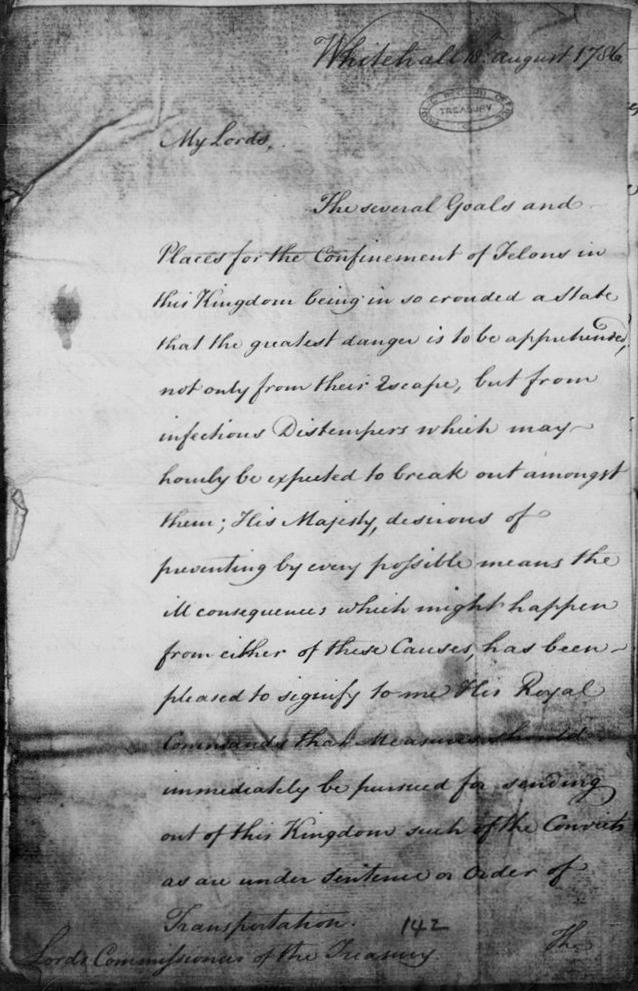 Whitehall 18th August 1786
PUBLIC RECORD OFFICE
TREASURY
My Lords,
The several Goals and
Places for the Confinement of Felons in
this Kingdom being in so crouded a State
that the greatest danger is to be apprehended,
not only from their Escape, but from
infectious Distempers which may
hourly be expected to break out amongst
them; His Majesty, desirous of
preventing by every possible means the
ill consequences which might happen
from either of these Causes, has been
pleased to signify to me His Royal
Commands that Measures should
immediately be pursued for sending
out of this Kingdom such of the Convicts
as are under Sentence or Order of
Transportation.
142
The
Lords Commissioners of the Treasury.